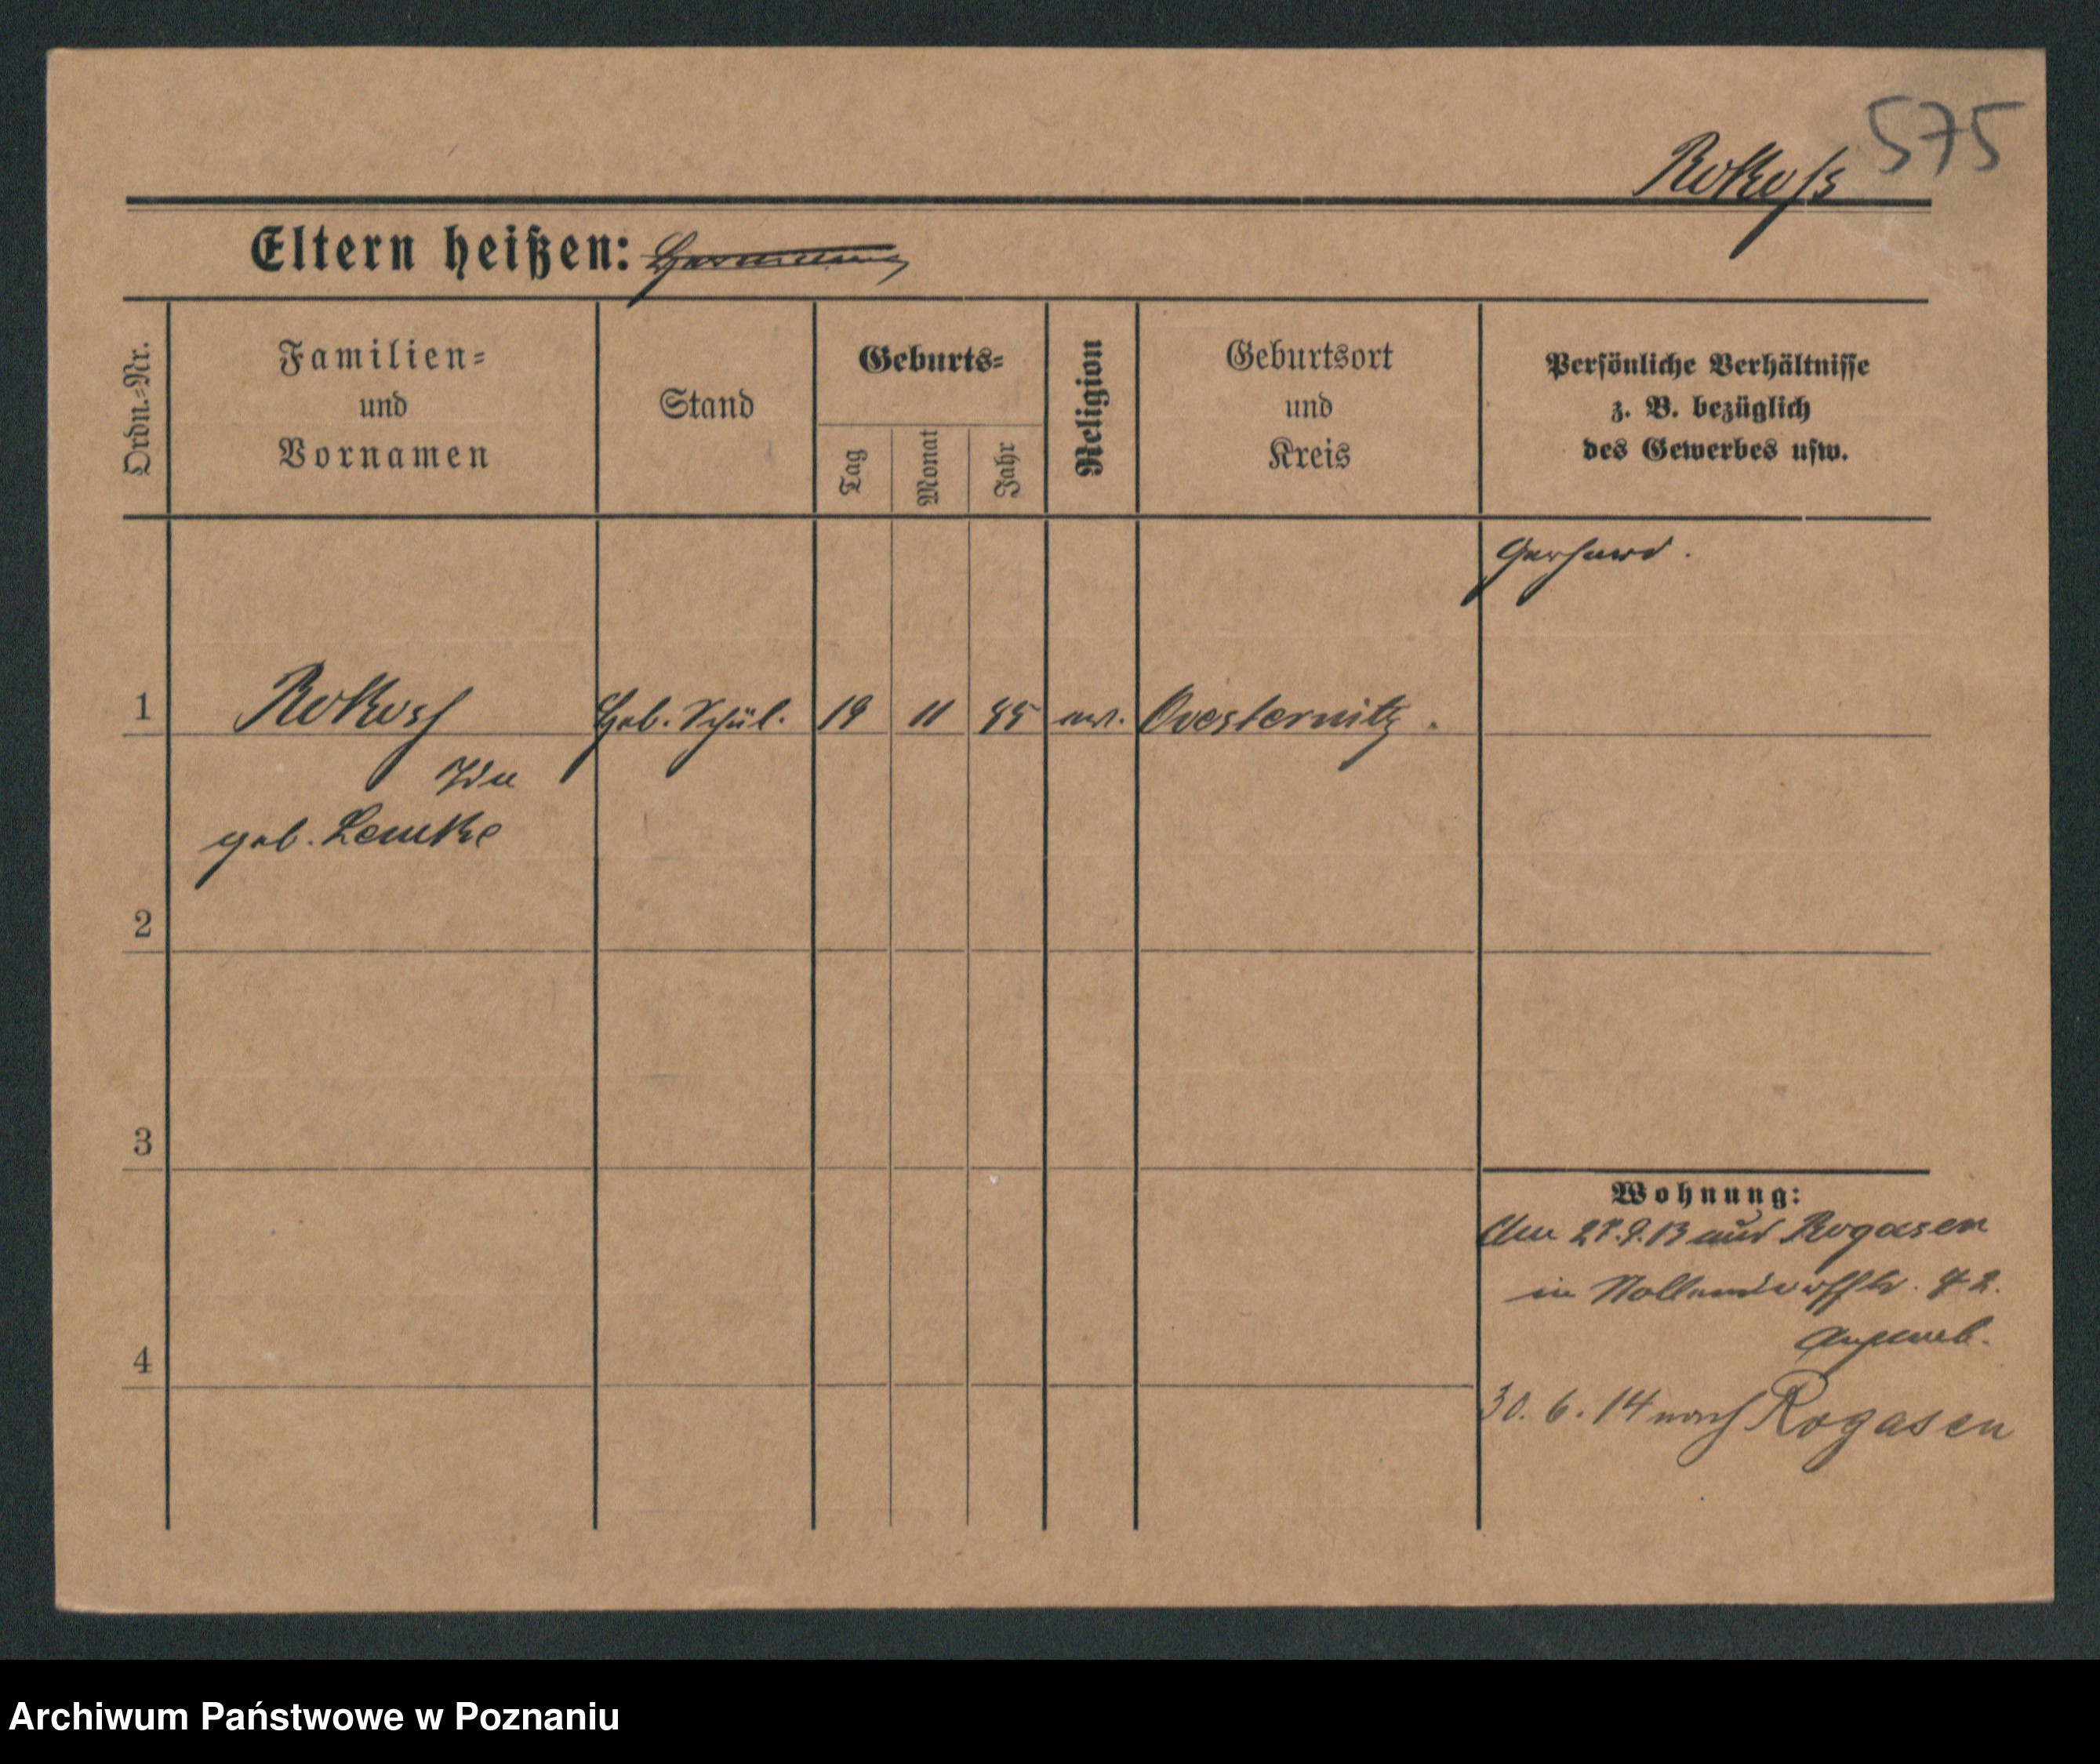 575
Rokoss
Eltern heißen: Hermann
Ordn.=Nr.
Familien=
und
Vornamen
Stand
Geburts=
Tag
Monat
Jahr
Religion
Geburtsort
und
Kreis
Persönliche Verhältnisse
z. B. bezüglich
des Gewerbes usw.
Gerhard.
1 Rokoss Heb. Schül. 19 11 85 ev. Ovesternitz.
Ida
geb. Lemke
2
3
Wohnung:
Am 27.9.13 aus Rogasen
in Nollendorffstr. 42.
Angemeld.
4
30. 6. 14 nach Rogasen
Archiwum Państwowe w Poznaniu